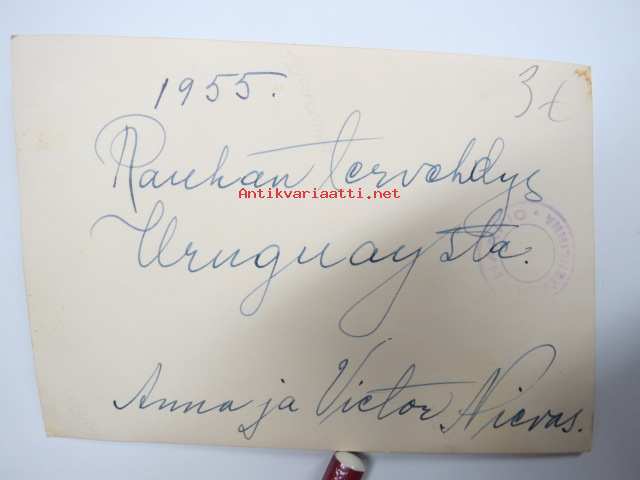 1955.
3€
Rauhan tervehdys
Antikvariaatti.net
Uruguaysta.
Anna ja Victor Nievas.